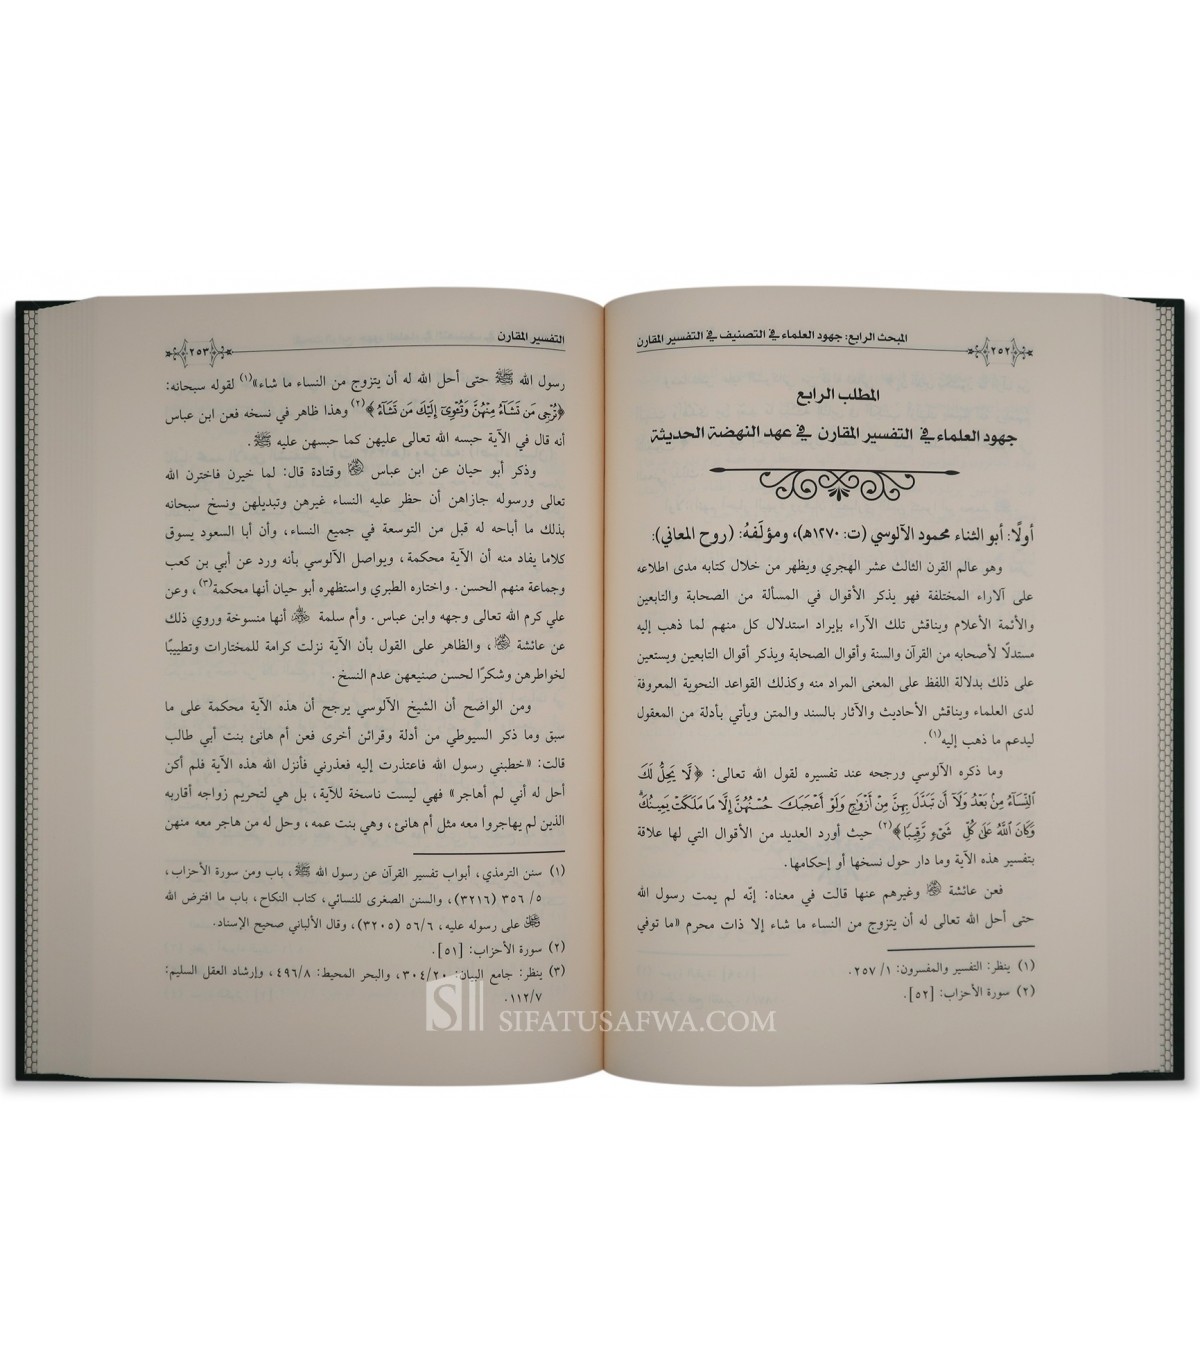 ٢٥٢
المبحث الرابع: جهود العلماء في التصنيف في التفسير المقارن
المطلب الرابع
جهود العلماء في التفسير المقارن في عهد النهضة الحديثة
أولًا: أبو الثناء محمود الآلوسي (ت: ١٢٧٠هـ)، ومؤلَفهُ: (روح المعاني):
وهو عالم القرن الثالث عشر الهجري ويظهر من خلال كتابه مدى اطلاعه
على آلاراء المختلفة فهو يذكر الأقوال في المسألة من الصحابة والتابعين
والأئمة الأعلام ويناقش تلك الآراء بإيراد استدلال كل منهم لما ذهب إليه
مستدلًا لأصحابه من القرآن والسنة وأقوال الصحابة ويذكر أقوال التابعين ويستعين
على ذلك بدلالة اللفظ على المعنى المراد منه وكذلك القواعد النحوية المعروفة
لدى العلماء ويناقش الأحاديث والآثار بالسند والمتن ويأتي بأدلة من المعقول
ليدعم ما ذهب إليه(١).
وما ذكره الآلوسي ورجحه عند تفسيره لقول الله تعالى: ﴿لَّا يَحِلُّ لَكَ
ٱلنِّسَآءُ مِنۢ بَعْدُ وَلَآ أَن تَبَدَّلَ بِهِنَّ مِنْ أَزْوَٰجٍ وَلَوْ أَعْجَبَكَ حُسْنُهُنَّ إِلَّا مَا مَلَكَتْ يَمِينُكَۗ
وَكَانَ ٱللَّهُ عَلَىٰ كُلِّ شَىْءٍ رَّقِيبًا﴾(٢) حيث أورد العديد من الأقوال التي لها علاقة
بتفسير هذه الآية وما دار حول نسخها أو إحكامها.
فعن عائشة ﵂ وغيرهم عنها قالت في معناه: إنّه لم يمت رسول الله
حتى أحل الله تعالى له أن يتزوج من النساء ما شاء إلا ذات محرم «ما توفي
(١) ينظر: التفسير والمفسرون: ١/ ٢٥٧.
(٢) سورة الأحزاب: [٥٢].
التفسير المقارن
٢٥٣
رسول الله ﷺ حتى أحل الله له أن يتزوج من النساء ما شاء»(١) لقوله سبحانه:
﴿تُرْجِى مَن تَشَآءُ مِنْهُنَّ وَتُـْٔوِىٓ إِلَيْكَ مَن تَشَآءُ﴾(٢) وهذا ظاهر في نسخه فعن ابن عباس
أنه قال في الآية حبسه الله تعالى عليهن كما حبسهن عليه ﷺ.
وذكر أبو حيان عن ابن عباس ﵄ وقتادة قال: لما خيرن فاخترن الله
تعالى ورسوله جازاهن أن حظر عليه النساء غيرهن وتبديلهن ونسخ سبحانه
بذلك ما أباحه له قبل من التوسعة في جميع النساء، وأن أبا السعود يسوق
كلاما يفاد منه أن الآية محكمة، ويواصل الآلوسي بأنه ورد عن أبي بن كعب
وجماعة منهم الحسن. واختاره الطبري واستظهره أبو حيان أنها محكمة(٣)، وعن
علي كرم الله تعالى وجهه وابن عباس. وأم سلمة ﵃ أنها منسوخة وروي ذلك
عن عائشة ﵂، والظاهر على القول بأن الآية نزلت كرامة للمختارات وتطييبًا
لخواطرهن وشكرًا لحسن صنيعهن عدم النسخ.
ومن الواضح أن الشيخ الآلوسي يرجح أن هذه الآية محكمة على ما
سبق وما ذكر السيوطي من أدلة وقرائن أخرى فعن أم هانئ بنت أبي طالب
قالت: «خطبني رسول الله فاعتذرت إليه فعذرني فأنزل الله هذه الآية فلم أكن
أحل له أني لم أهاجر» فهي ليست ناسخة للآية، بل هي لتحريم زواجه أقاربه
الذين لم يهاجروا معه مثل أم هانئ، وهي بنت عمه، وحل له من هاجر معه منهن
(١) سنن الترمذي، أبواب تفسير القرآن عن رسول الله ﷺ، باب ومن سورة الأحزاب،
٥/ ٣٥٦ (٣٢١٦)، والسنن الصغرى للنسائي، كتاب النكاح، باب ما افترض الله
ﷻ على رسوله عليه، ٥٦/٦ (٣٢٠٥)، وقال الألباني صحيح الإسناد.
(٢) سورة الأحزاب: [٥١].
(٣) ينظر: جامع البيان: ٣٠٤/٢٠، والبحر المحيط: ٤٩٦/٨، وإرشاد العقل السليم:
١١٢/٧.
SIFATUSAFWA.COM